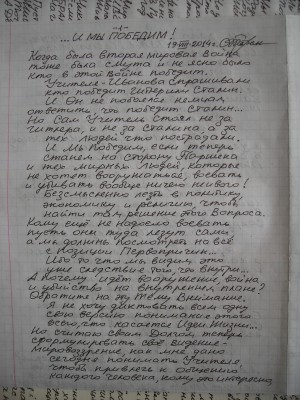 ... И МЫ ПОБЕДИМ!
19-VIII-2014г.
Когда была вторая мировая война
тоже была смута и не ясно было
кто в этой войне победит.
Учителя Иванова спрашивали
кто победит Гитлер или Сталин.
И Он не побоялся немцам
ответить, что победит Сталин...
Но Сам Учитель Стоял не за
Гитлера, и не за Сталина а за
тех людей что пострадали.
И мы Победим, если теперь
станем на сторону
и тех мирных людей, которые
не хотят вооружаться, воевать
и убивать вообще никого живого!
Бессмысленно лезть в политику,
экономику и религию, чтобы
найти там решение этого вопроса.
Кому ещё не надоело воевать
пусть они туда лезут сами
а мы должны посмотреть на всё
с позиции Первопричин...
Ибо то что мы видим это
уже следствие того что внутри...
А почему идёт вооружение, война
и убийство на внутреннем плане?
Обратите на эту Тему Внимание.
Я не хочу диктовать всем одну
свою версию понимания этого
всего, что касается Идеи Жизни...
Но считаю своим Долгом теперь
сформулировать своё видение -
Мировоззрение, как мне дано
сегодня понимать Учителя,
чтобы привлечь к общению
каждого человека, кому это интересно